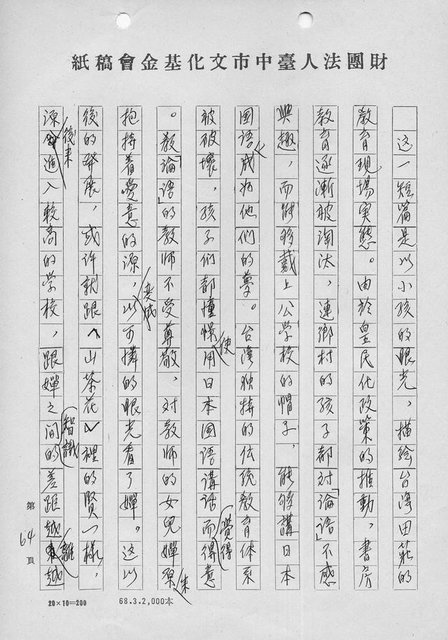 財團法人臺中市文化基金會稿紙
这一短篇是以小孩的眼光，描绘台湾田莊的
教育現場実態。由於皇民化政策的推動，書房
教育逐漸被淘汰，連鄉村的孩子都对「論語」不感
興趣，而能够戴上公学校的帽子，能够講日本
国语，成为他们的夢。台湾独特的伝統教育体系
被破壞，孩子们都憧憬使用日本国语講话而覺得得意
。教「論语」的教师不受尊敬，对教师的女兒嬋
抱持着爱意的源，變成以可憐的眼光看了嬋。这以
後的発展，或许就跟〈山茶花〉裡的賢一樣，
源後来進入較高的学校，跟嬋之间的智識差距越来越離
第64頁
20×10=200
68.3.2,000本